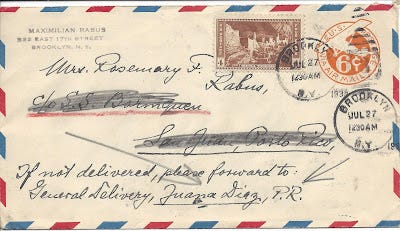 MAXIMILIAN RABUS
EAST 17TH STREET
BROOKLYN, N. Y.
U.S.
6¢
AIR MAIL
4
BROOKLYN
JUL 27
1230 AM
N.Y.
BROOKLYN
JUL 27
1230 AM
N.Y.
Mrs. Rosemary F.
Rabus,
c/o S.S. Borinquen
San Juan, Porto Rico,
If not delivered, please forward to:
General Delivery, Juana Diaz, P.R.